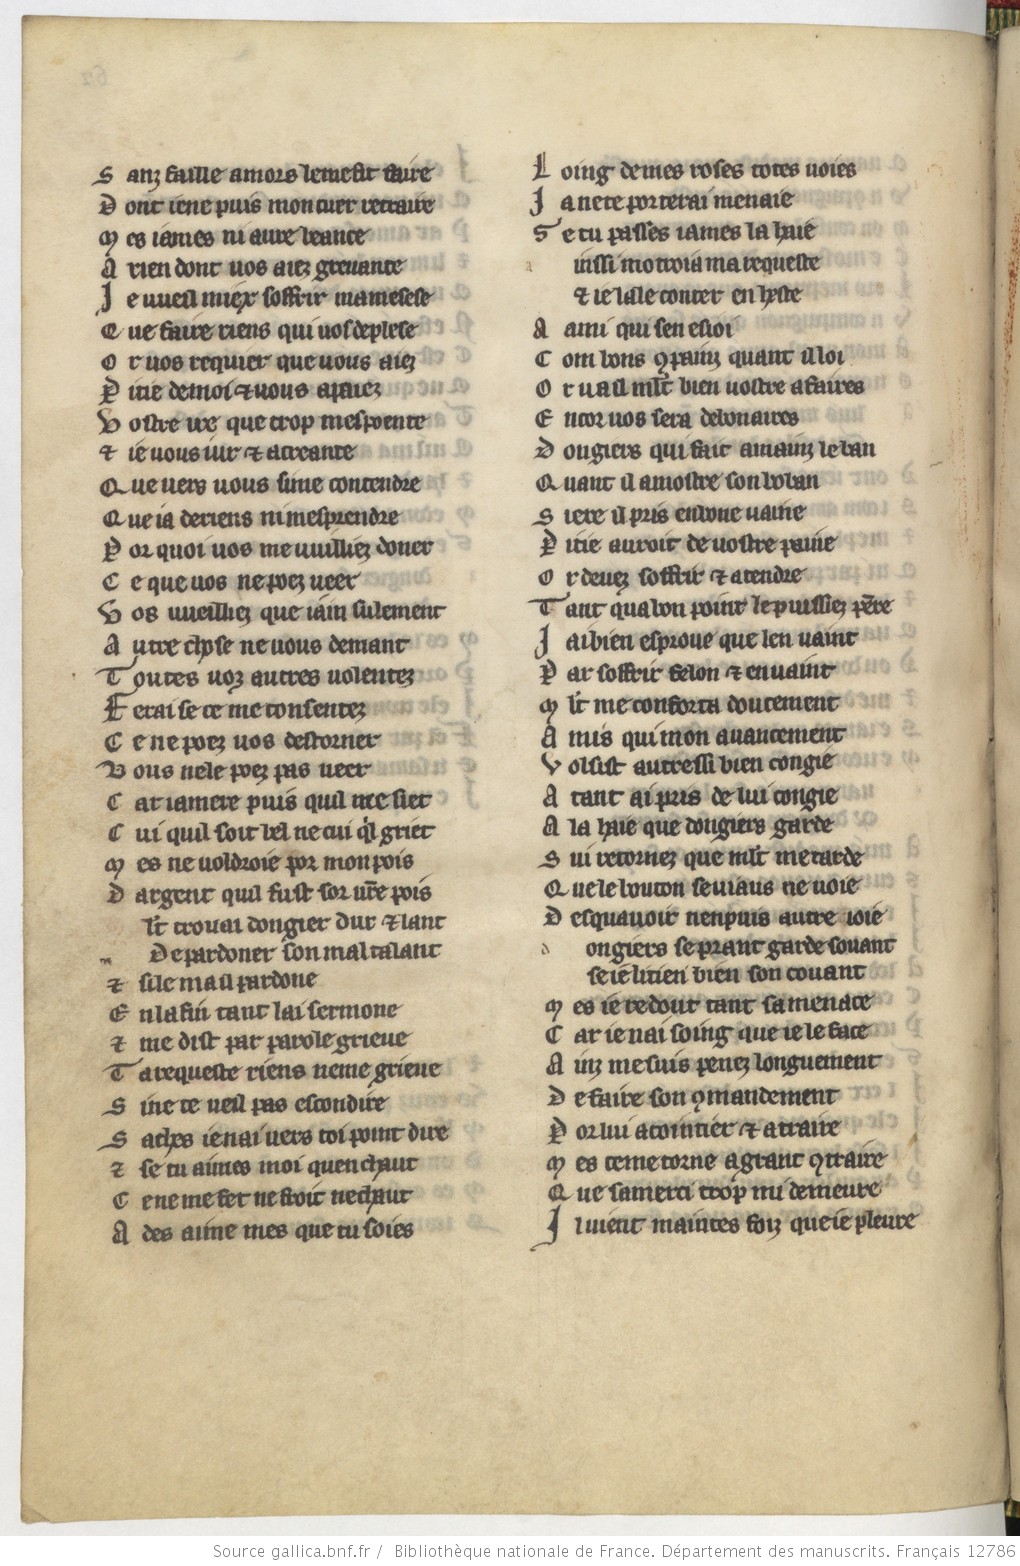 S anz faille amors le me fit faire
D ont ie ne puis mon cuer retraire
M es iames ni aure beance
A rien dont vos aiez grevance
J e vueil miex soffrir ma mesese
Q ue faire riens qui vos deplese
O r vos requier que vous aiez
P itie de moi & vous apaiez
V ostre ire que trop mespoente
& ie vous iur & acreante
Q ue vers vous sime contendre
Q ue ia de riens ni mesprendre
P or quoi vos me vuilliez doner
C e que vos ne poez veer
V os vueilliez que iain sulement
A utre chose ne vous demant
T outes voz autres volentez
F erai se ce me consentez
C e ne poez vos destorner
V ous nele poez pas veer
C ar iamere puis quil me siet
C ui quil soit bel ne cui ql griet
M es ne voldroie por mon pois
D argent quil fust sor vre pois
lt trovai dongier dur & lant
De pardoner son mal talant
& si le ma il pardone
E n la fin tant lai sermone
& me dist par parole grieve
T a requeste riens ne me grieve
S i ne te veil pas escondire
S aches ie nai vers toi point dire
& se tu aimes moi quen chaut
C e ne me fet ne froit ne chaut
A des aime mes que tu soies
L oing de mes roses totes voies
J a ne te porterai menaie
S e tu passes iames la haie
a inssi motroia ma requeste
& ie lale conter en heste
A ami qui sen esioi
C om bons 9painz quant il loi
O r va il mlt bien vostre afaires
E ncor vos sera debonaires
D ongiers qui fait a mainz le ban
Q uant il a mostre son boban
S iere il pris en bone vaine
P itie auroit de vostre paine
O r devez soffrir & atendre
T ant qua bon point le puissiez pere
J ai bien esprove que len vaint
P ar soffrir felon & en vaint
M lt me conforta doucement
A mis qui mon avancement
V olsist autressi bien con gie
A tant ai pris de lui congie
A la haie que dongiers garde
S ui retornez que mlt me tarde
Q ue le bouton se viaus ne voie
D es quavoir nen puis autre ioie
d ongiers se prant garde sovant
se ie li tien bien son covant
M es ie redout tant sa menace
C ar ie nai soing que ie le face
A inz me suis penez longuement
D e faire son 9mandement
P or lui acointier & atraire
M es ce me torne a grant 9traire
Q ue sa merci trop mi demeure
J l vient maintes foiz que ie pleure
Source gallica.bnf.fr / Bibliothèque nationale de France. Département des manuscrits. Français 12786